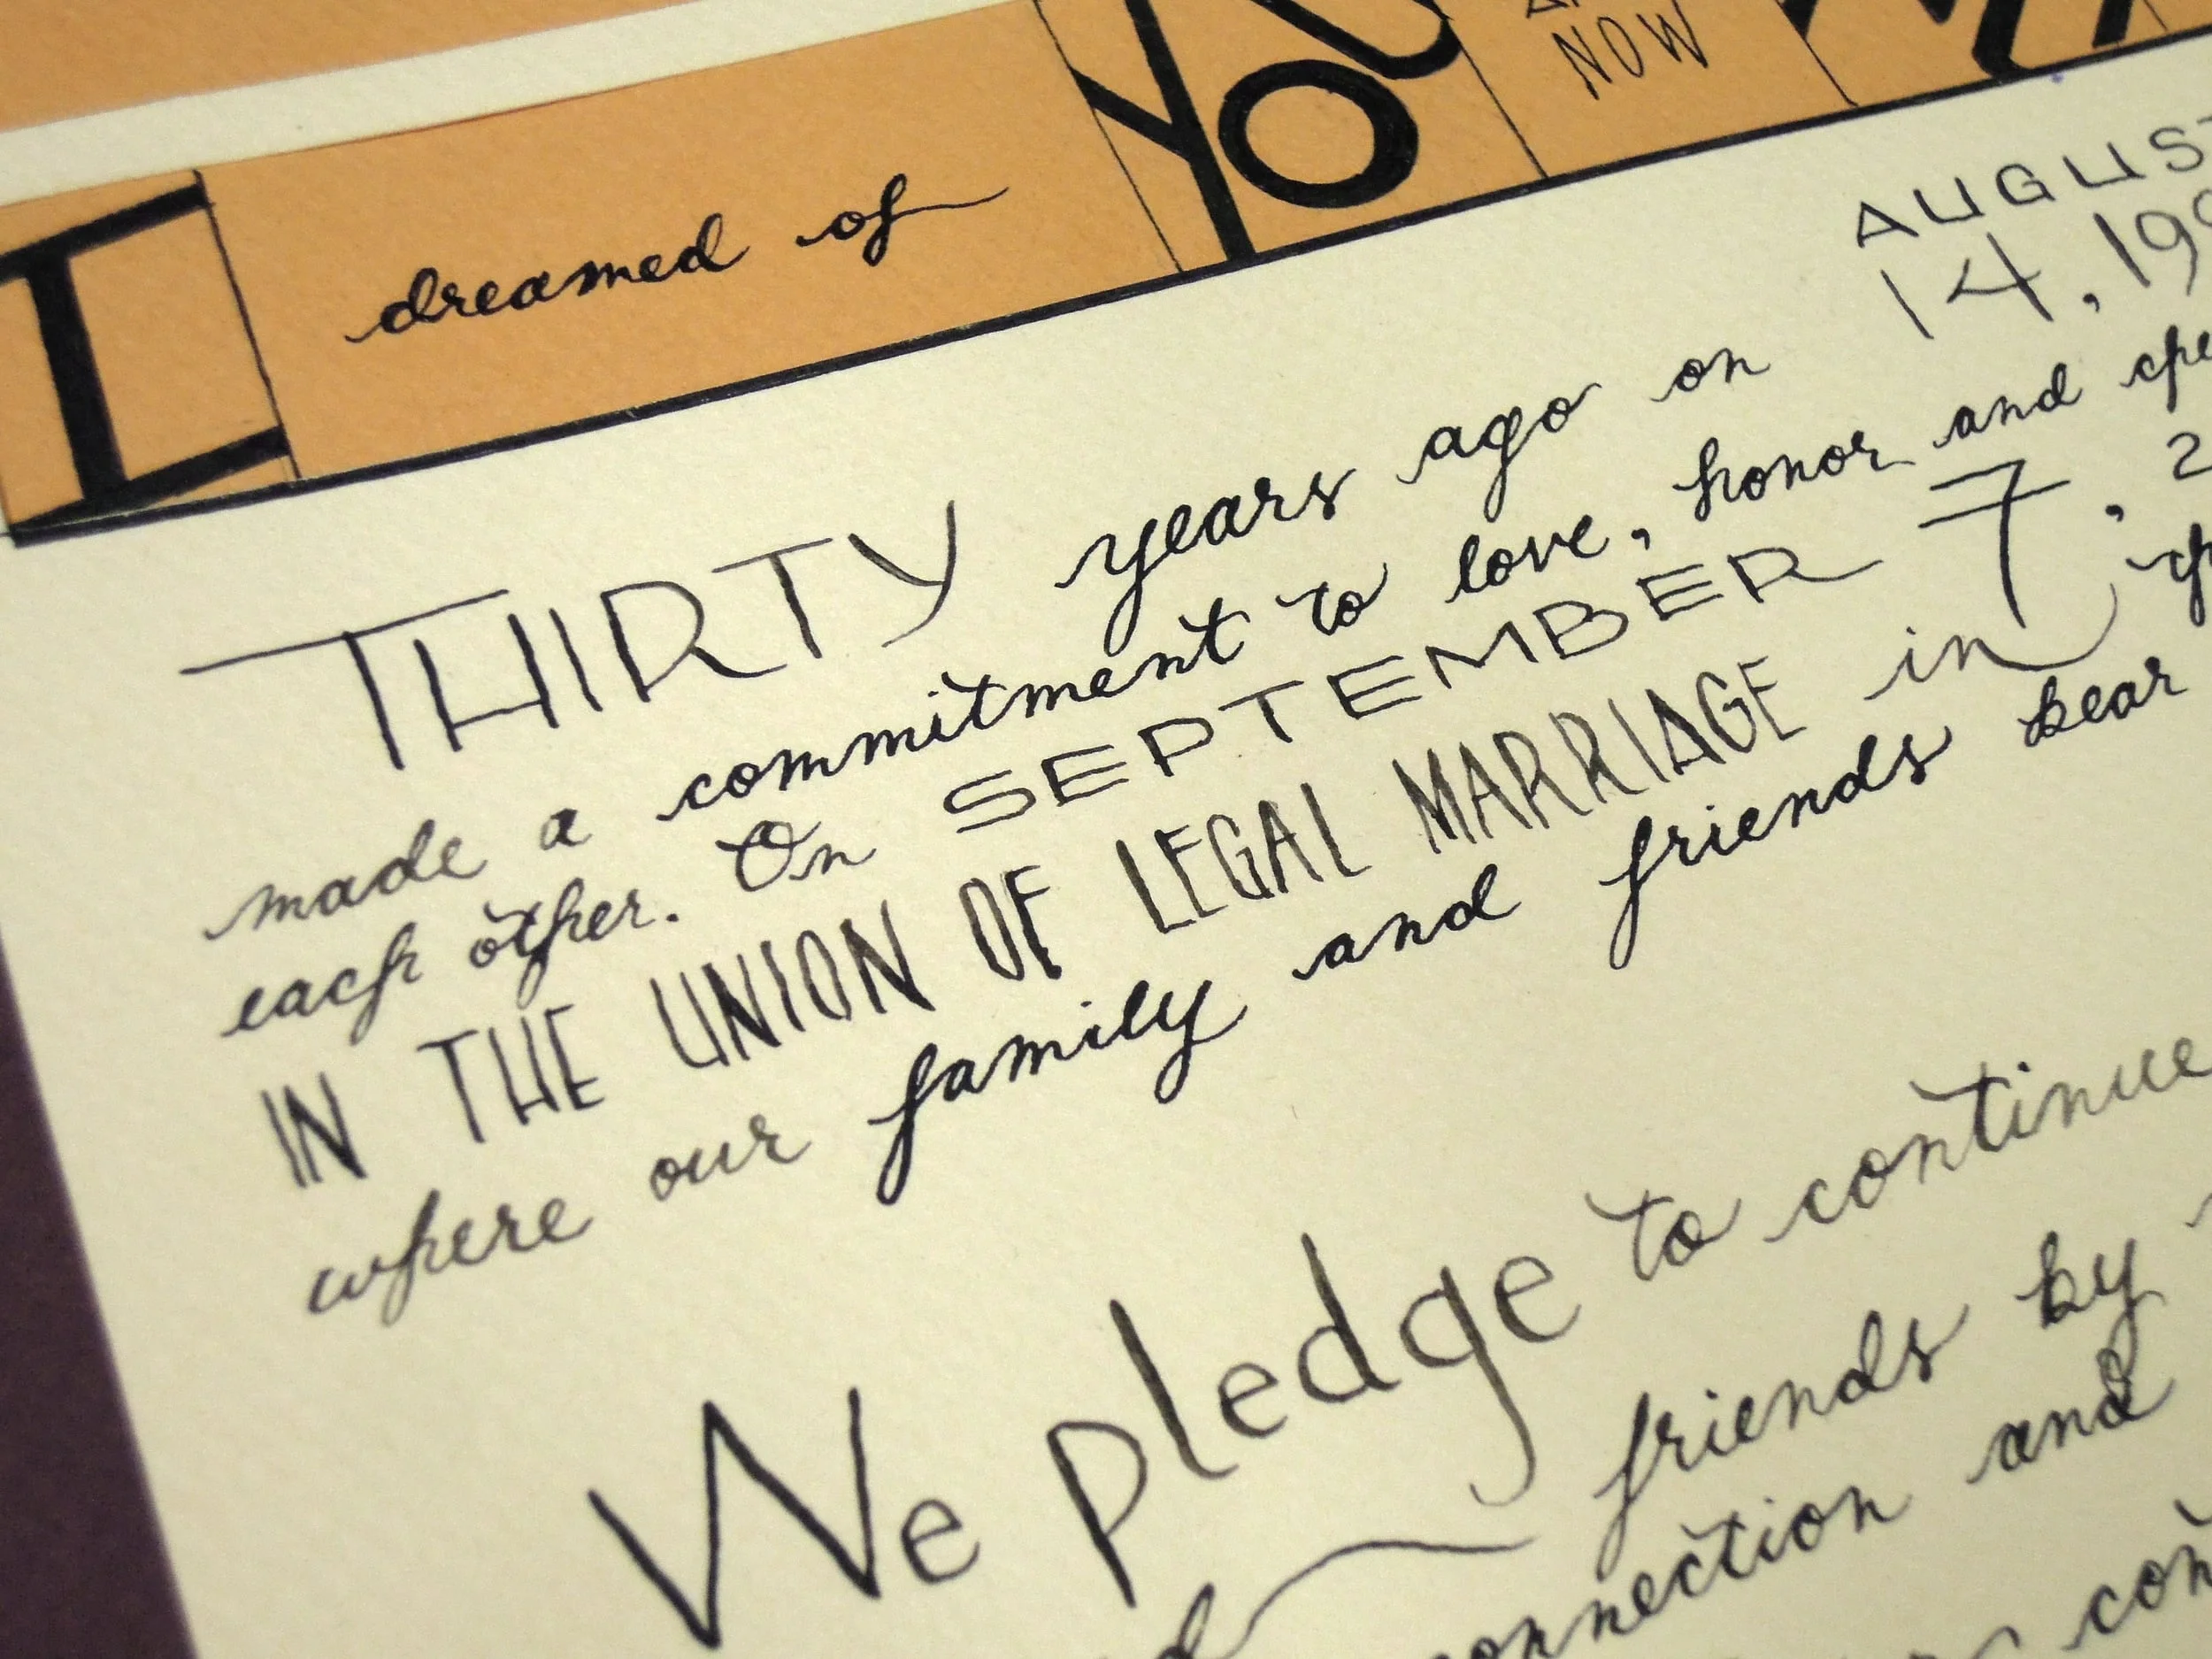 I dreamed of YOU NOW
AUGUST
14, 19
THIRTY years ago on
made a commitment to love, honor and
each other. On SEPTEMBER 7, 2
IN THE UNION OF LEGAL MARRIAGE in
where our family and friends bear
We pledge to continue
friends by
connection and